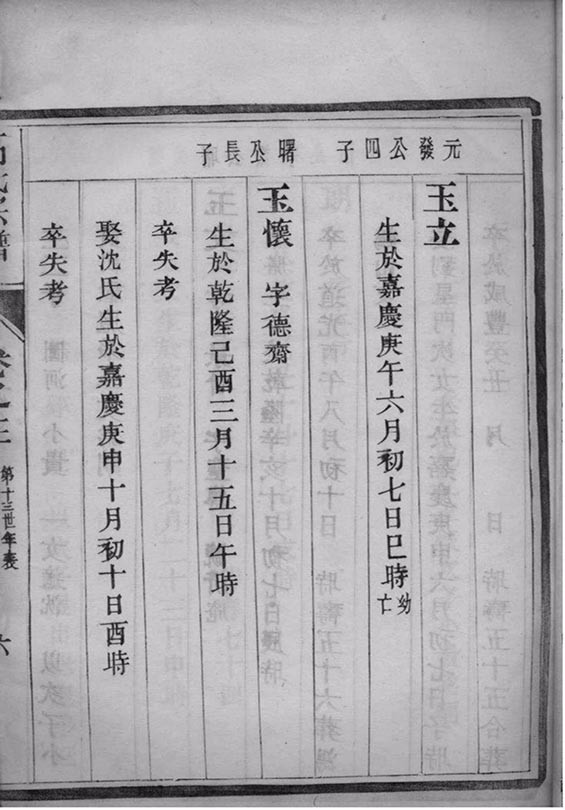 元發公四子
曙公長子
玉立
生於嘉慶庚午六月初七日巳時幼亡
玉懷 字德齋
生於乾隆己酉三月十五日午時
卒失考
娶沈氏生於嘉慶庚申十月初十日酉時
卒失考
第十三世年表
六